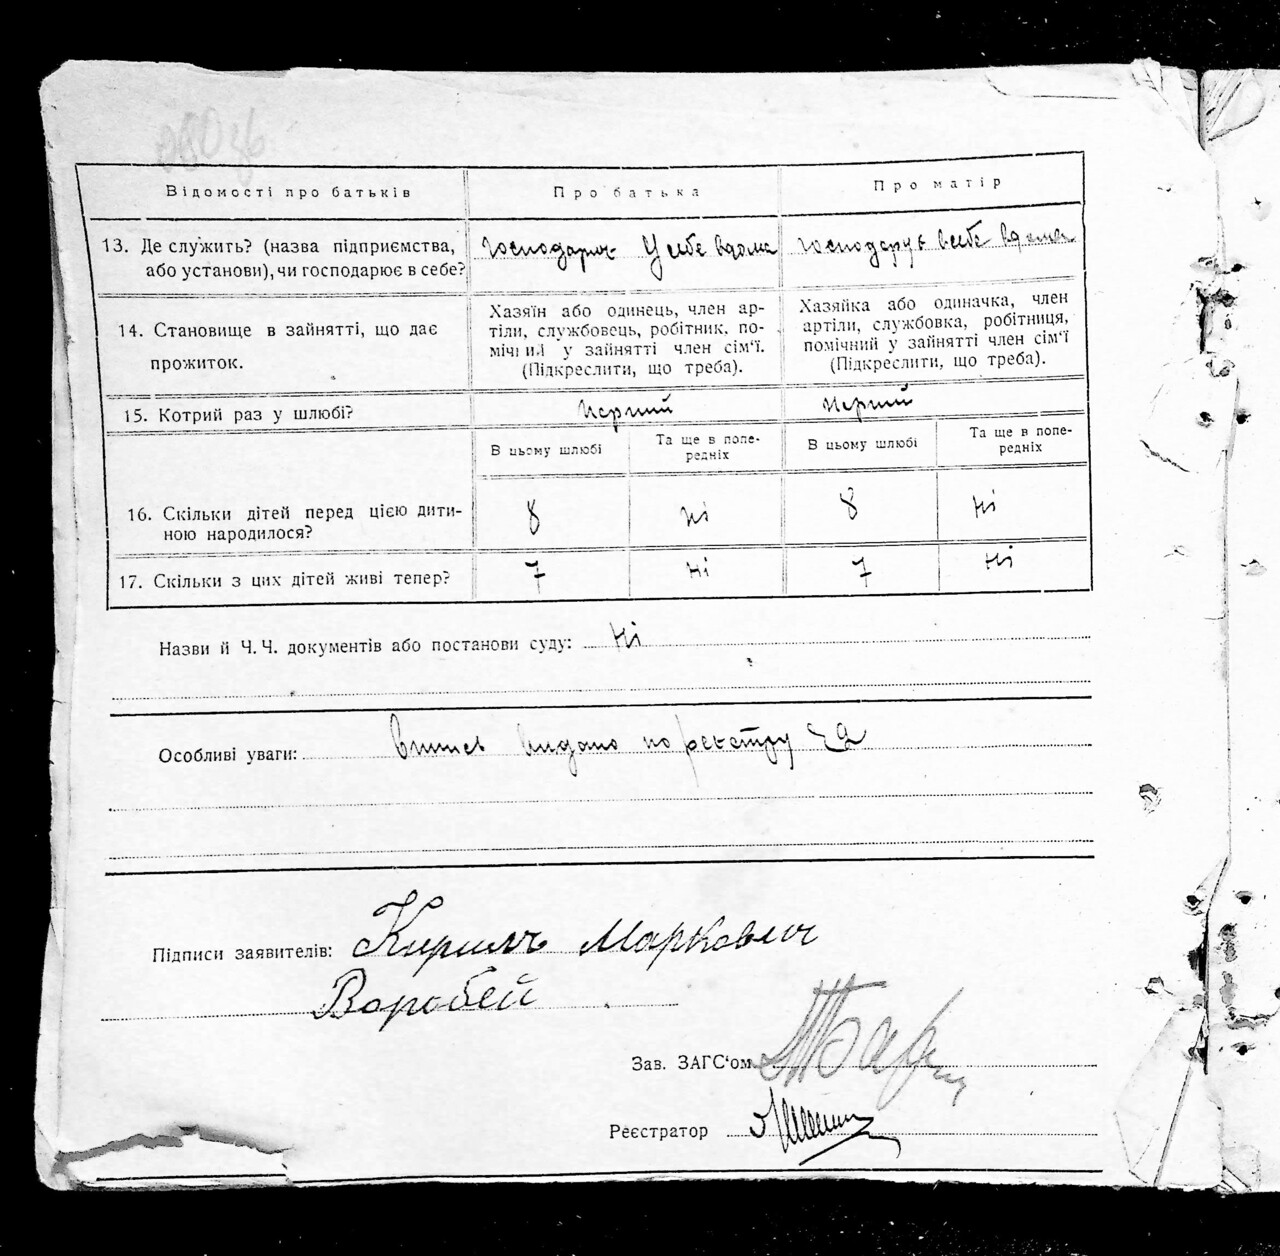 Відомості про батьків Про батька Про матір
13. Де служить? (назва підприємства, або установи), чи господарює в себе?
У себе вдома
вдома
14. Становище в зайнятті, що дає прожиток.
Хазяїн або одинець, член ар-
тіли, службовець, робітник, по-
мічний у зайнятті член сім'ї.
(Підкреслити, що треба).
Хазяйка або одиначка, член
артіли, службовка, робітниця,
помічний у зайнятті член сім'ї
(Підкреслити, що треба).
15. Котрий раз у шлюбі? Перший Перший
В цьому шлюбі Та ще в попе-
редніх В цьому шлюбі Та ще в попе-
редніх
16. Скільки дітей перед цією дити-
ною народилося? 8 ні 8 ні
17. Скільки з цих дітей живі тепер? 7 ні 7 ні
Назви й Ч. Ч. документів або постанови суду: ні
Особливі уваги: видано по реєстру
Підписи заявителів: Кирилъ Маркович
Воробей
Зав. ЗАГС'ом
Реєстратор